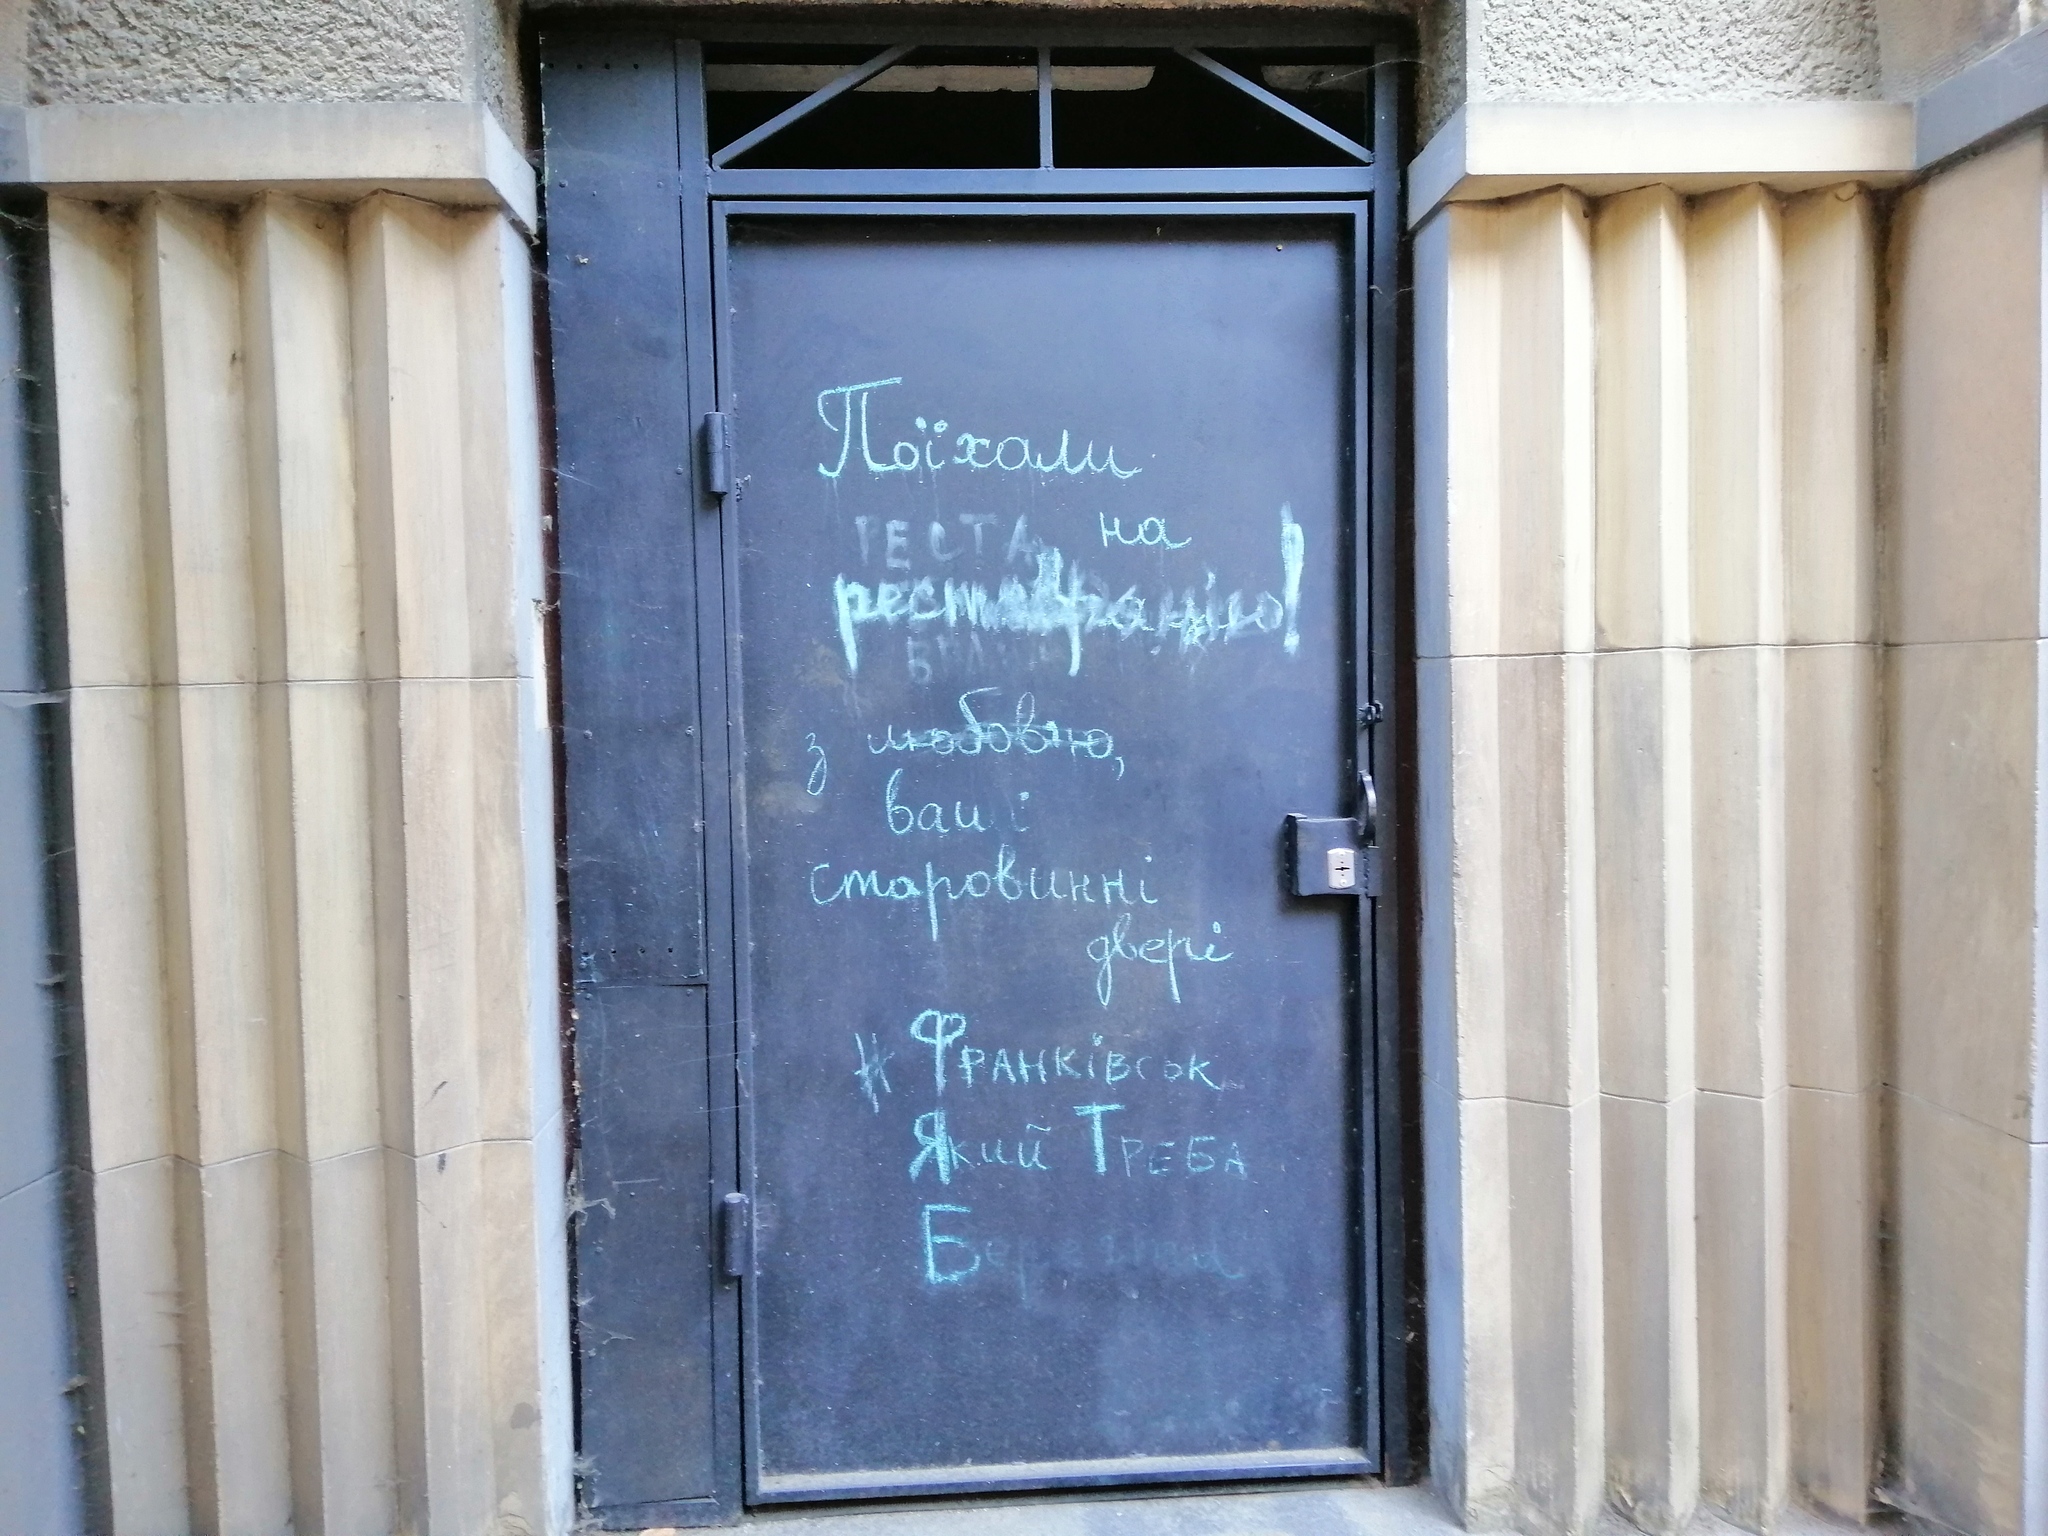 Поїхали
РЕСТА на
реставрацію!
з любовью,
ваші
старовинні
двері
#ФРАНКІВСЬК
ЯКИЙ ТРЕБА
Берегти